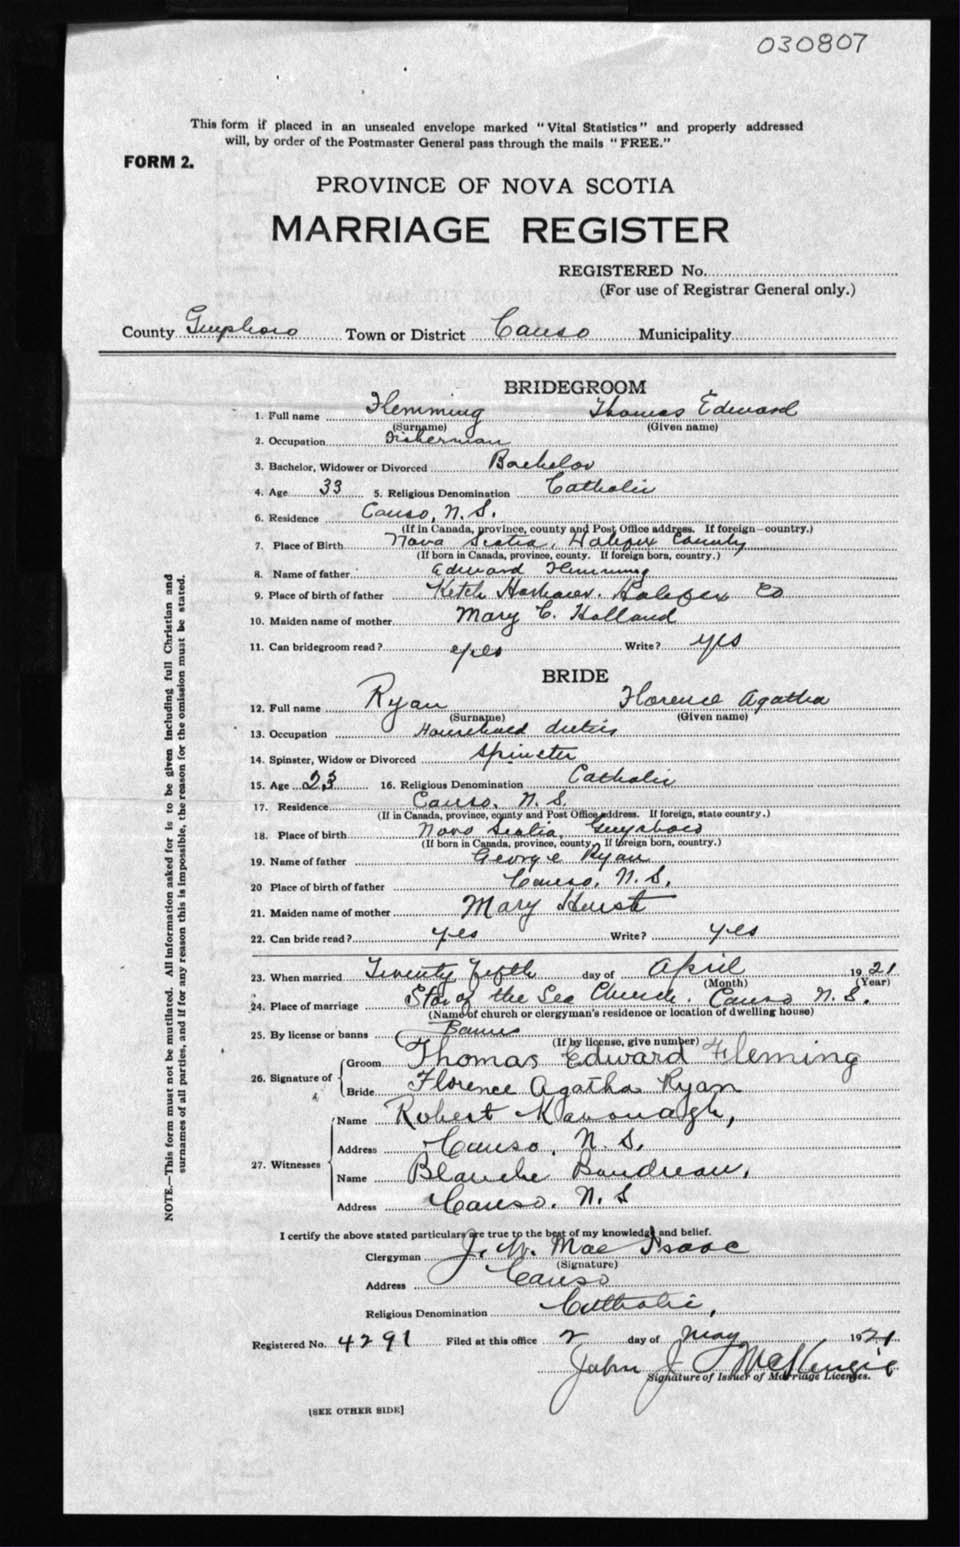 030807
This form if placed in an unsealed envelope marked "Vital Statistics" and properly addressed
will, by order of the Postmaster General pass through the mails "FREE."
FORM 2.
PROVINCE OF NOVA SCOTIA
MARRIAGE REGISTER
REGISTERED No.
(For use of Registrar General only.)
County Guysboro Town or District Canso Municipality
BRIDEGROOM
1. Full name Flemming Thomas Edward
(Surname) (Given name)
2. Occupation Fisherman
3. Bachelor, Widower or Divorced Bachelor
4. Age 33 5. Religious Denomination Catholic
6. Residence Canso, N. S.
(If in Canada, province, county and Post Office address. If foreign—country.)
7. Place of Birth Nova Scotia, Halifax County
(If born in Canada, province, county. If foreign born, country.)
8. Name of father Edward Flemming
9. Place of birth of father Ketch Harbour. Halifax Co
10. Maiden name of mother Mary C. Holland
11. Can bridegroom read? yes Write? yes
BRIDE
12. Full name Ryan Florence Agatha
(Surname) (Given name)
13. Occupation Household duties
14. Spinster, Widow or Divorced Spinster
15. Age 23 16. Religious Denomination Catholic
17. Residence Canso, N. S.
(If in Canada, province, county and Post Office address. If foreign, state country.)
18. Place of birth Nova Scotia, Guysboro
(If born in Canada, province, county. If foreign born, country.)
19. Name of father George Ryan
20 Place of birth of father Canso, N. S.
21. Maiden name of mother Mary Hurst
22. Can bride read? yes Write? yes
23. When married Twenty Fifth day of April 1921
(Month) (Year)
24. Place of marriage Star of the Sea Church. Canso N. S.
(Name of church or clergyman's residence or location of dwelling house)
25. By license or banns Banns
(If by license, give number)
26. Signature of Groom Thomas Edward Fleming
Bride Florence Agatha Ryan
27. Witnesses Name Robert Kavonagh,
Address Canso, N. S.
Name Blanche Boudreau,
Address Canso. N. S
I certify the above stated particulars are true to the best of my knowledge and belief.
Clergyman J. W. MacIsaac
(Signature)
Address Canso
Religious Denomination Catholic,
Registered No. 4291 Filed at this office 2 day of May 1921
John J McKenzie
Signature of Issuer of Marriage Licenses.
[SEE OTHER SIDE]
NOTE.—This form must not be mutilated. All information asked for is to be given including full Christian and
surnames of all parties, and if for any reason this is impossible, the reason for the omission must be stated.